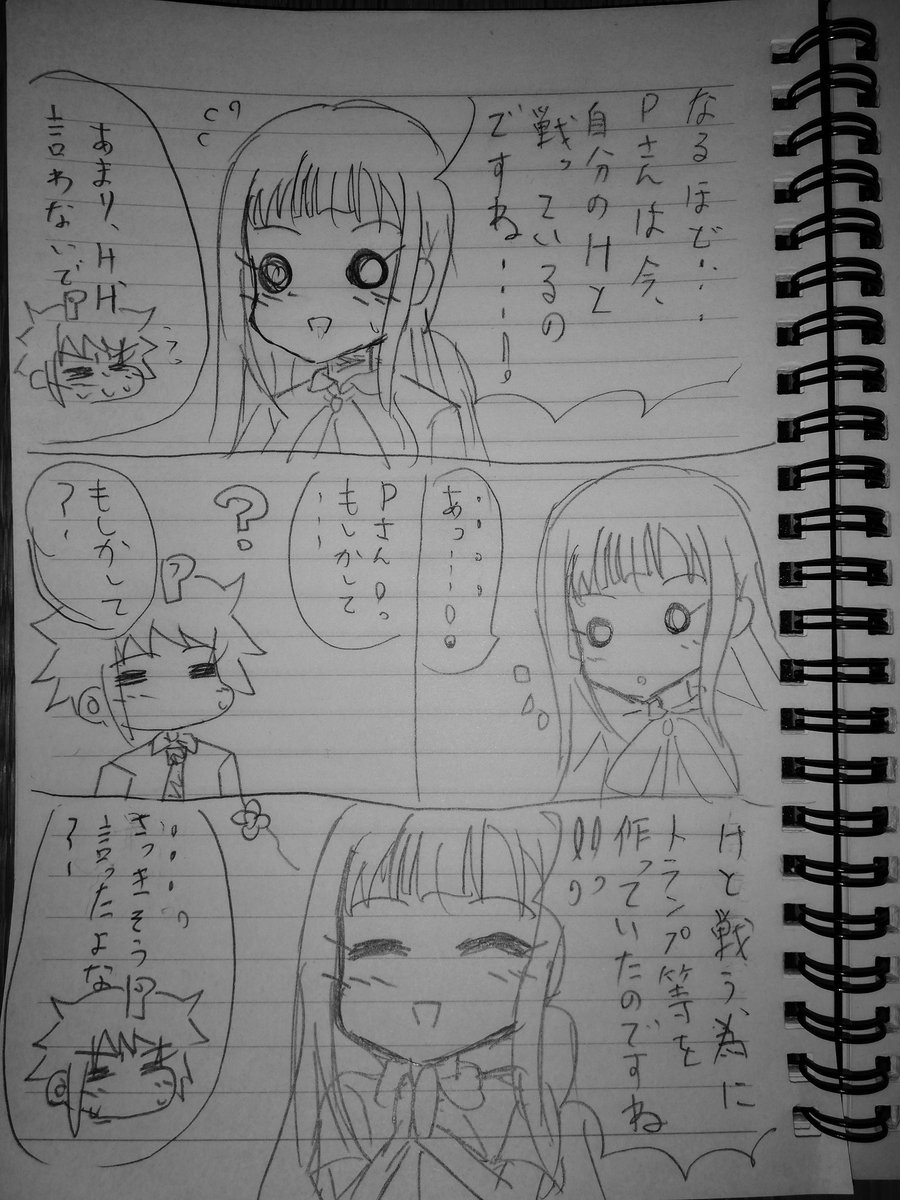 なるほど・・・
Pさんは今、
自分のHと
戦っているの
ですね・・・・!
あまり、H、H、
言わないで
・・・・
あっ・・・!
Pさん!っ
もしかして
・・・
もしかして
?
?
Hと戦う、為に
トランプ等を
作っていたのですね
!!っ
・・・・っ
さっきそう
言ったよな
?